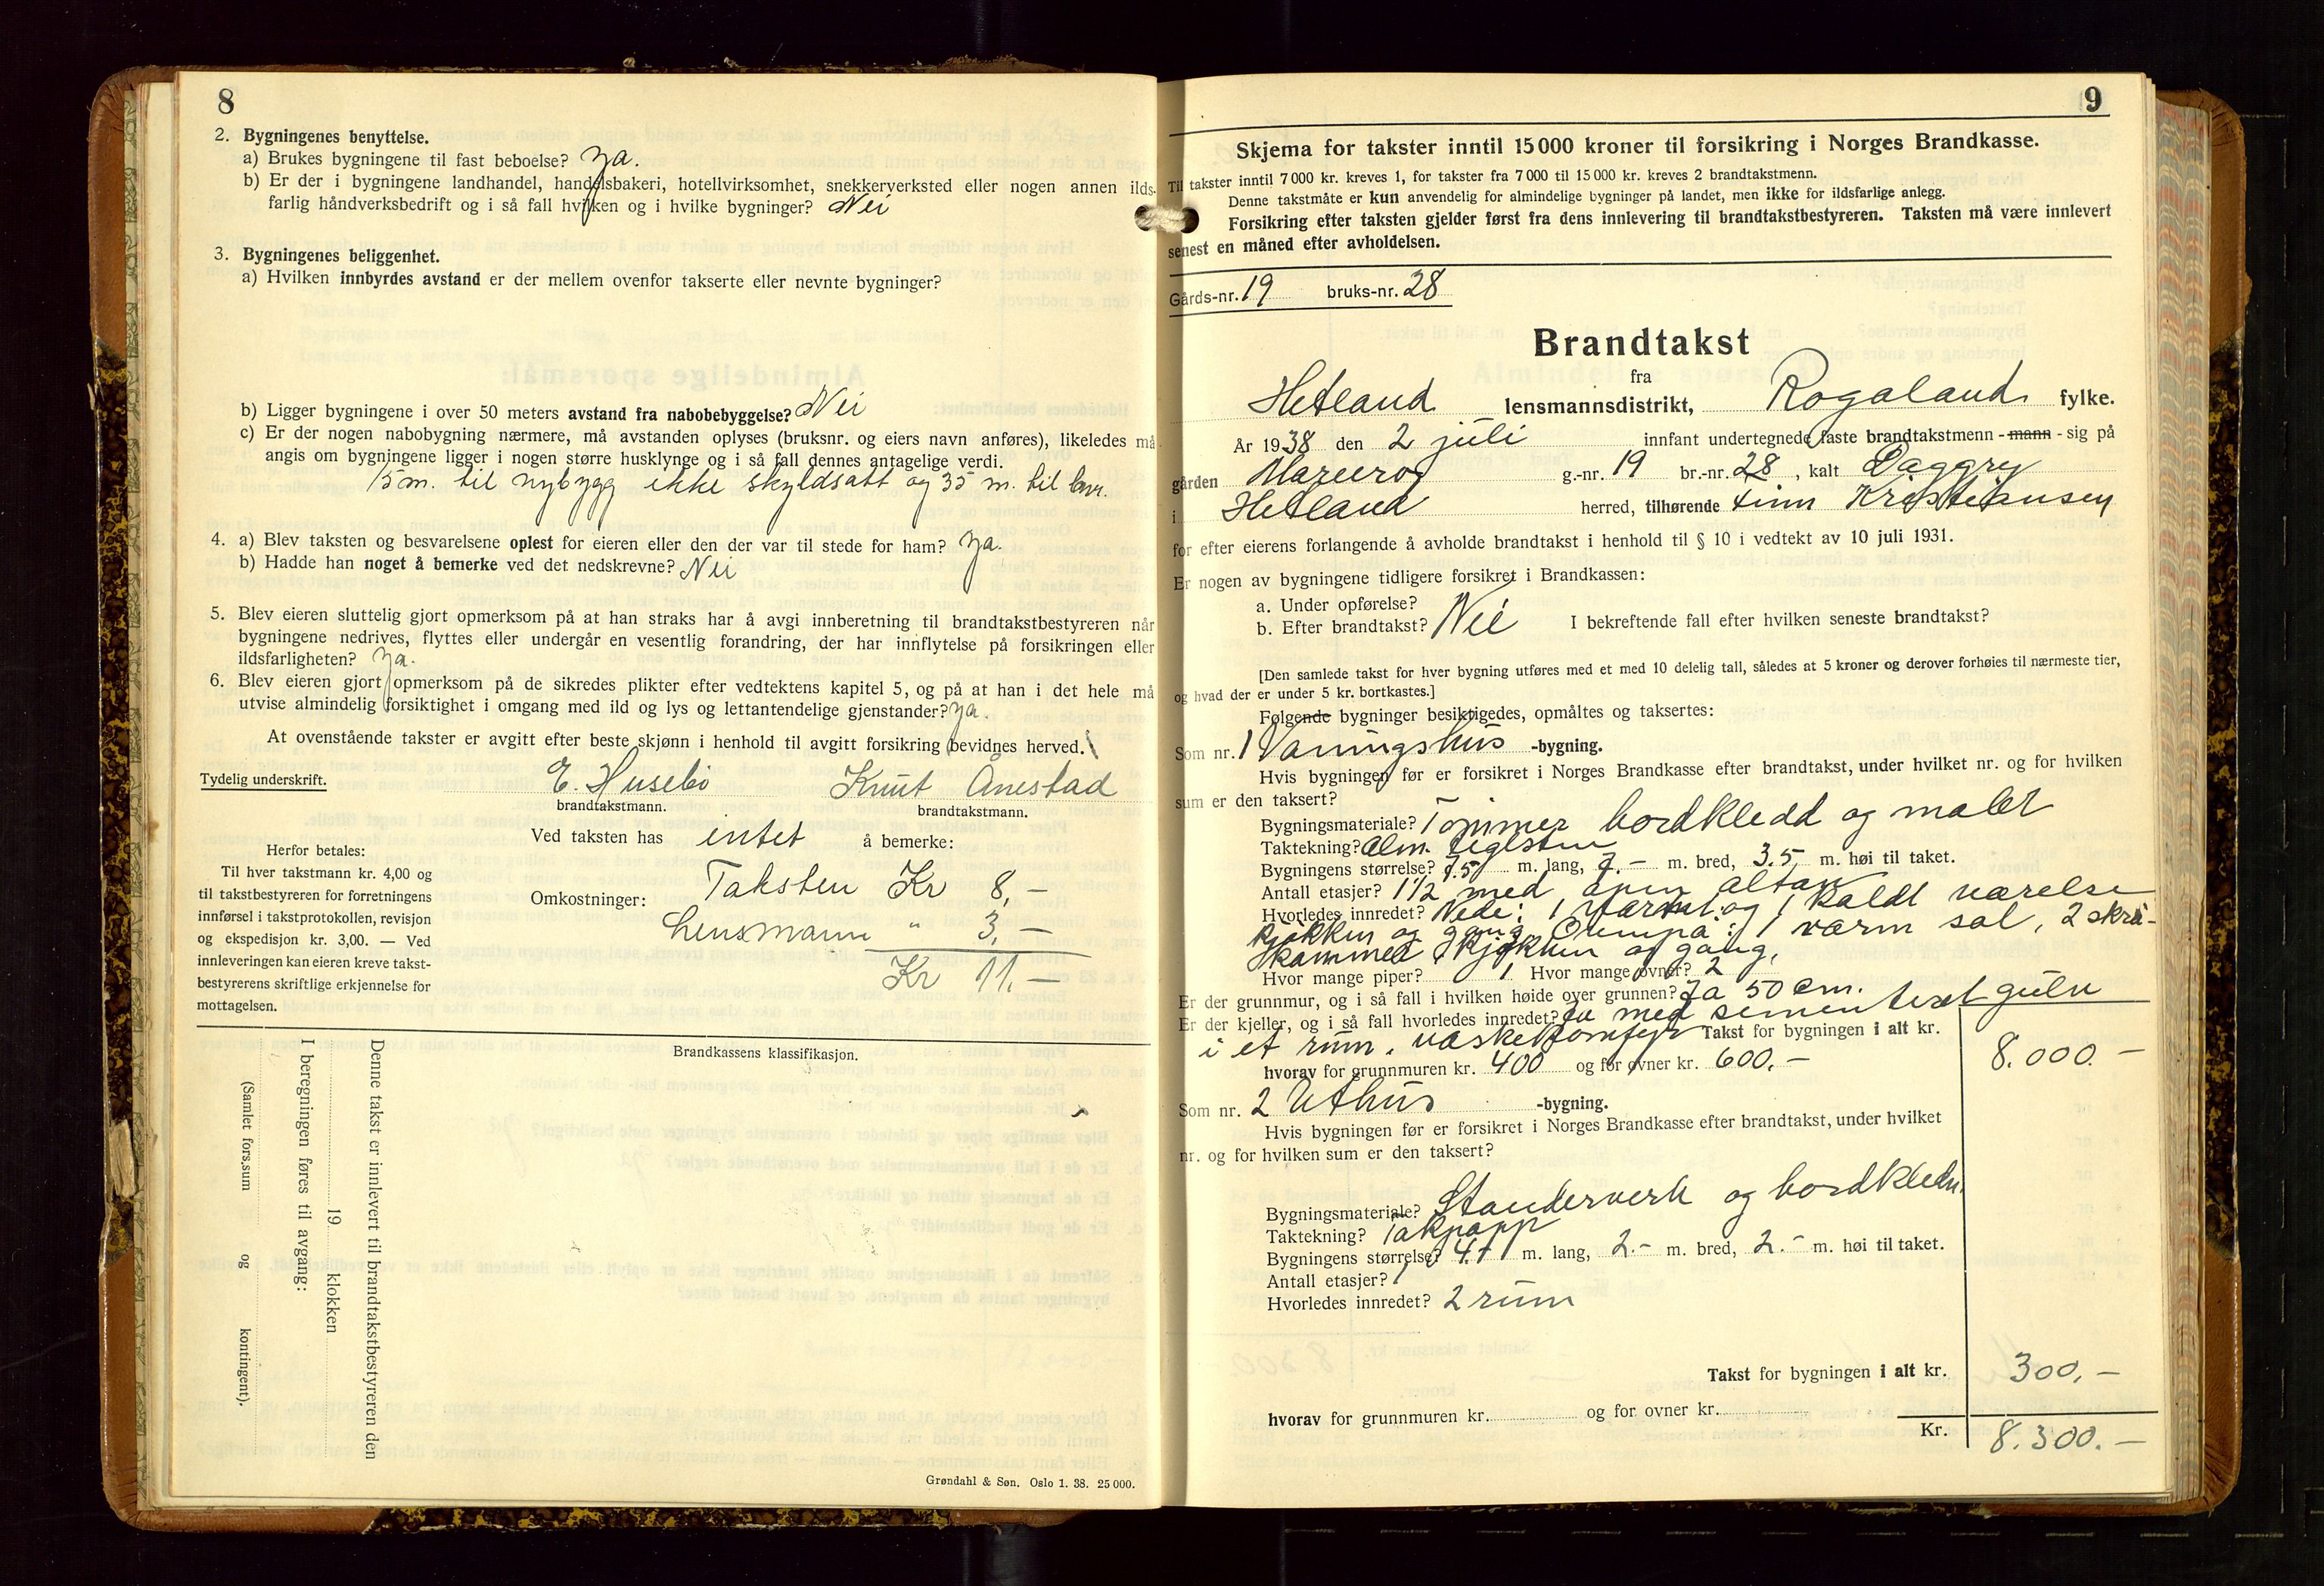 8
2. Bygningenes benyttelse.
a) Brukes bygningene til fast beboelse? Ja.
b) Er der i bygningene landhandel, handelsbakeri, hotellvirksomhet, snekkerverksted eller nogen annen ilds-
farlig håndverksbedrift og i så fall hvilken og i hvilke bygninger? Nei
3. Bygningenes beliggenhet.
a) Hvilken innbyrdes avstand er der mellem ovenfor takserte eller nevnte bygninger?
b) Ligger bygningene i over 50 meters avstand fra nabobebyggelse? Nei
c) Er der nogen nabobygning nærmere, må avstanden oplyses (bruksnr. og eiers navn anføres), likeledes må
angis om bygningene ligger i nogen større husklynge og i så fall dennes antagelige verdi.
15 m. til nybygg ikke skyldsatt og 35 m. til
4. a) Blev taksten og besvarelsene oplest for eieren eller den der var til stede for ham? Ja.
b) Hadde han noget å bemerke ved det nedskrevne? Nei
5. Blev eieren sluttelig gjort opmerksom på at han straks har å avgi innberetning til brandtakstbestyreren når
bygningene nedrives, flyttes eller undergår en vesentlig forandring, der har innflytelse på forsikringen eller
ildsfarligheten? Ja.
6. Blev eieren gjort opmerksom på de sikredes plikter efter vedtektens kapitel 5, og på at han i det hele må
utvise almindelig forsiktighet i omgang med ild og lys og lettantendelige gjenstander? Ja.
At ovenstående takster er avgitt efter beste skjønn i henhold til avgitt forsikring bevidnes herved.
Tydelig underskrift.
E. Husebø Knut Ånestad
brandtakstmann. brandtakstmann.
Ved taksten has intet å bemerke:
Omkostninger: Taksten Kr 8,-
Lensmann " 3,-
Kr 11.-
Herfor betales:
Til hver takstmann kr. 4,00 og
til takstbestyreren for forretningens
innførsel i takstprotokollen, revisjon
og ekspedisjon kr. 3,00. — Ved
innleveringen kan eieren kreve takst-
bestyrerens skriftlige erkjennelse for
mottagelsen.
Brandkassens klassifikasjon.
Denne takst er innlevert til brandtakstbestyreren den
19 klokken
I beregningen føres til avgang:
(Samlet fors.sum og kontingent).
Grøndahl & Søn. Oslo 1. 38. 25 000.
9
Skjema for takster inntil 15 000 kroner til forsikring i Norges Brandkasse.
Til takster inntil 7 000 kr. kreves 1, for takster fra 7 000 til 15 000 kr. kreves 2 brandtakstmenn.
Denne takstmåte er kun anvendelig for almindelige bygninger på landet, men ikke for ildsfarlige anlegg.
Forsikring efter taksten gjelder først fra dens innlevering til brandtakstbestyreren. Taksten må være innlevert
senest en måned efter avholdelsen.
Gårds-nr. 19 bruks-nr. 28
Brandtakst
fra
Hetland lensmannsdistrikt, Rogaland fylke.
År 1938 den 2 juli innfant undertegnede faste brandtakstmenn - mann - sig på
gården g.-nr. 19 br.-nr. 28, kalt Daggry
i Hetland herred, tilhørende Finn Kristiansen
for efter eierens forlangende å avholde brandtakst i henhold til § 10 i vedtekt av 10 juli 1931.
Er nogen av bygningene tidligere forsikret i Brandkassen:
a. Under opførelse?
b. Efter brandtakst? Nei I bekreftende fall efter hvilken seneste brandtakst?
[Den samlede takst for hver bygning utføres med et med 10 delelig tall, således at 5 kroner og derover forhøies til nærmeste tier,
og hvad der er under 5 kr. bortkastes.]
Følgende bygninger besiktigedes, opmåltes og taksertes:
Som nr. 1 Vaningshus -bygning.
Hvis bygningen før er forsikret i Norges Brandkasse efter brandtakst, under hvilket nr. og for hvilken
sum er den taksert?
Bygningsmateriale? Tømmer bordkledd og malet
Taktekning? Alm. teglsten
Bygningens størrelse? 7.5 m. lang, 7.- m. bred, 3.5 m. høi til taket.
Antall etasjer? 1½ med åpen altan
Hvorledes innredet? Nede: 1 varmt og 1 kaldt værelse
kjøkken og gang. Ovenpå: 1 varm sal, 2 skrå-
kammer kjøkken og gang,
Hvor mange piper? 1. Hvor mange ovner? 2
Er der grunnmur, og i så fall i hvilken høide over grunnen? Ja 50 cm.
Er der kjeller, og i så fall hvorledes innredet? Ja med sementert gulv
i et rum. Takst for bygningen i alt kr. 8.000.-
hvorav for grunnmuren kr. 400 og for ovner kr. 600.-
Som nr. 2 Uthus -bygning.
Hvis bygningen før er forsikret i Norges Brandkasse efter brandtakst, under hvilket
nr. og for hvilken sum er den taksert?
Bygningsmateriale? Standerverk og bordkledn.
Taktekning? Takpapp
Bygningens størrelse? 4.- m. lang, 2.- m. bred, 2.- m. høi til taket.
Antall etasjer? 1
Hvorledes innredet? 2 rum
Takst for bygningen i alt kr. 300,-
hvorav for grunnmuren kr. og for ovner kr.
Kr. 8.300.-